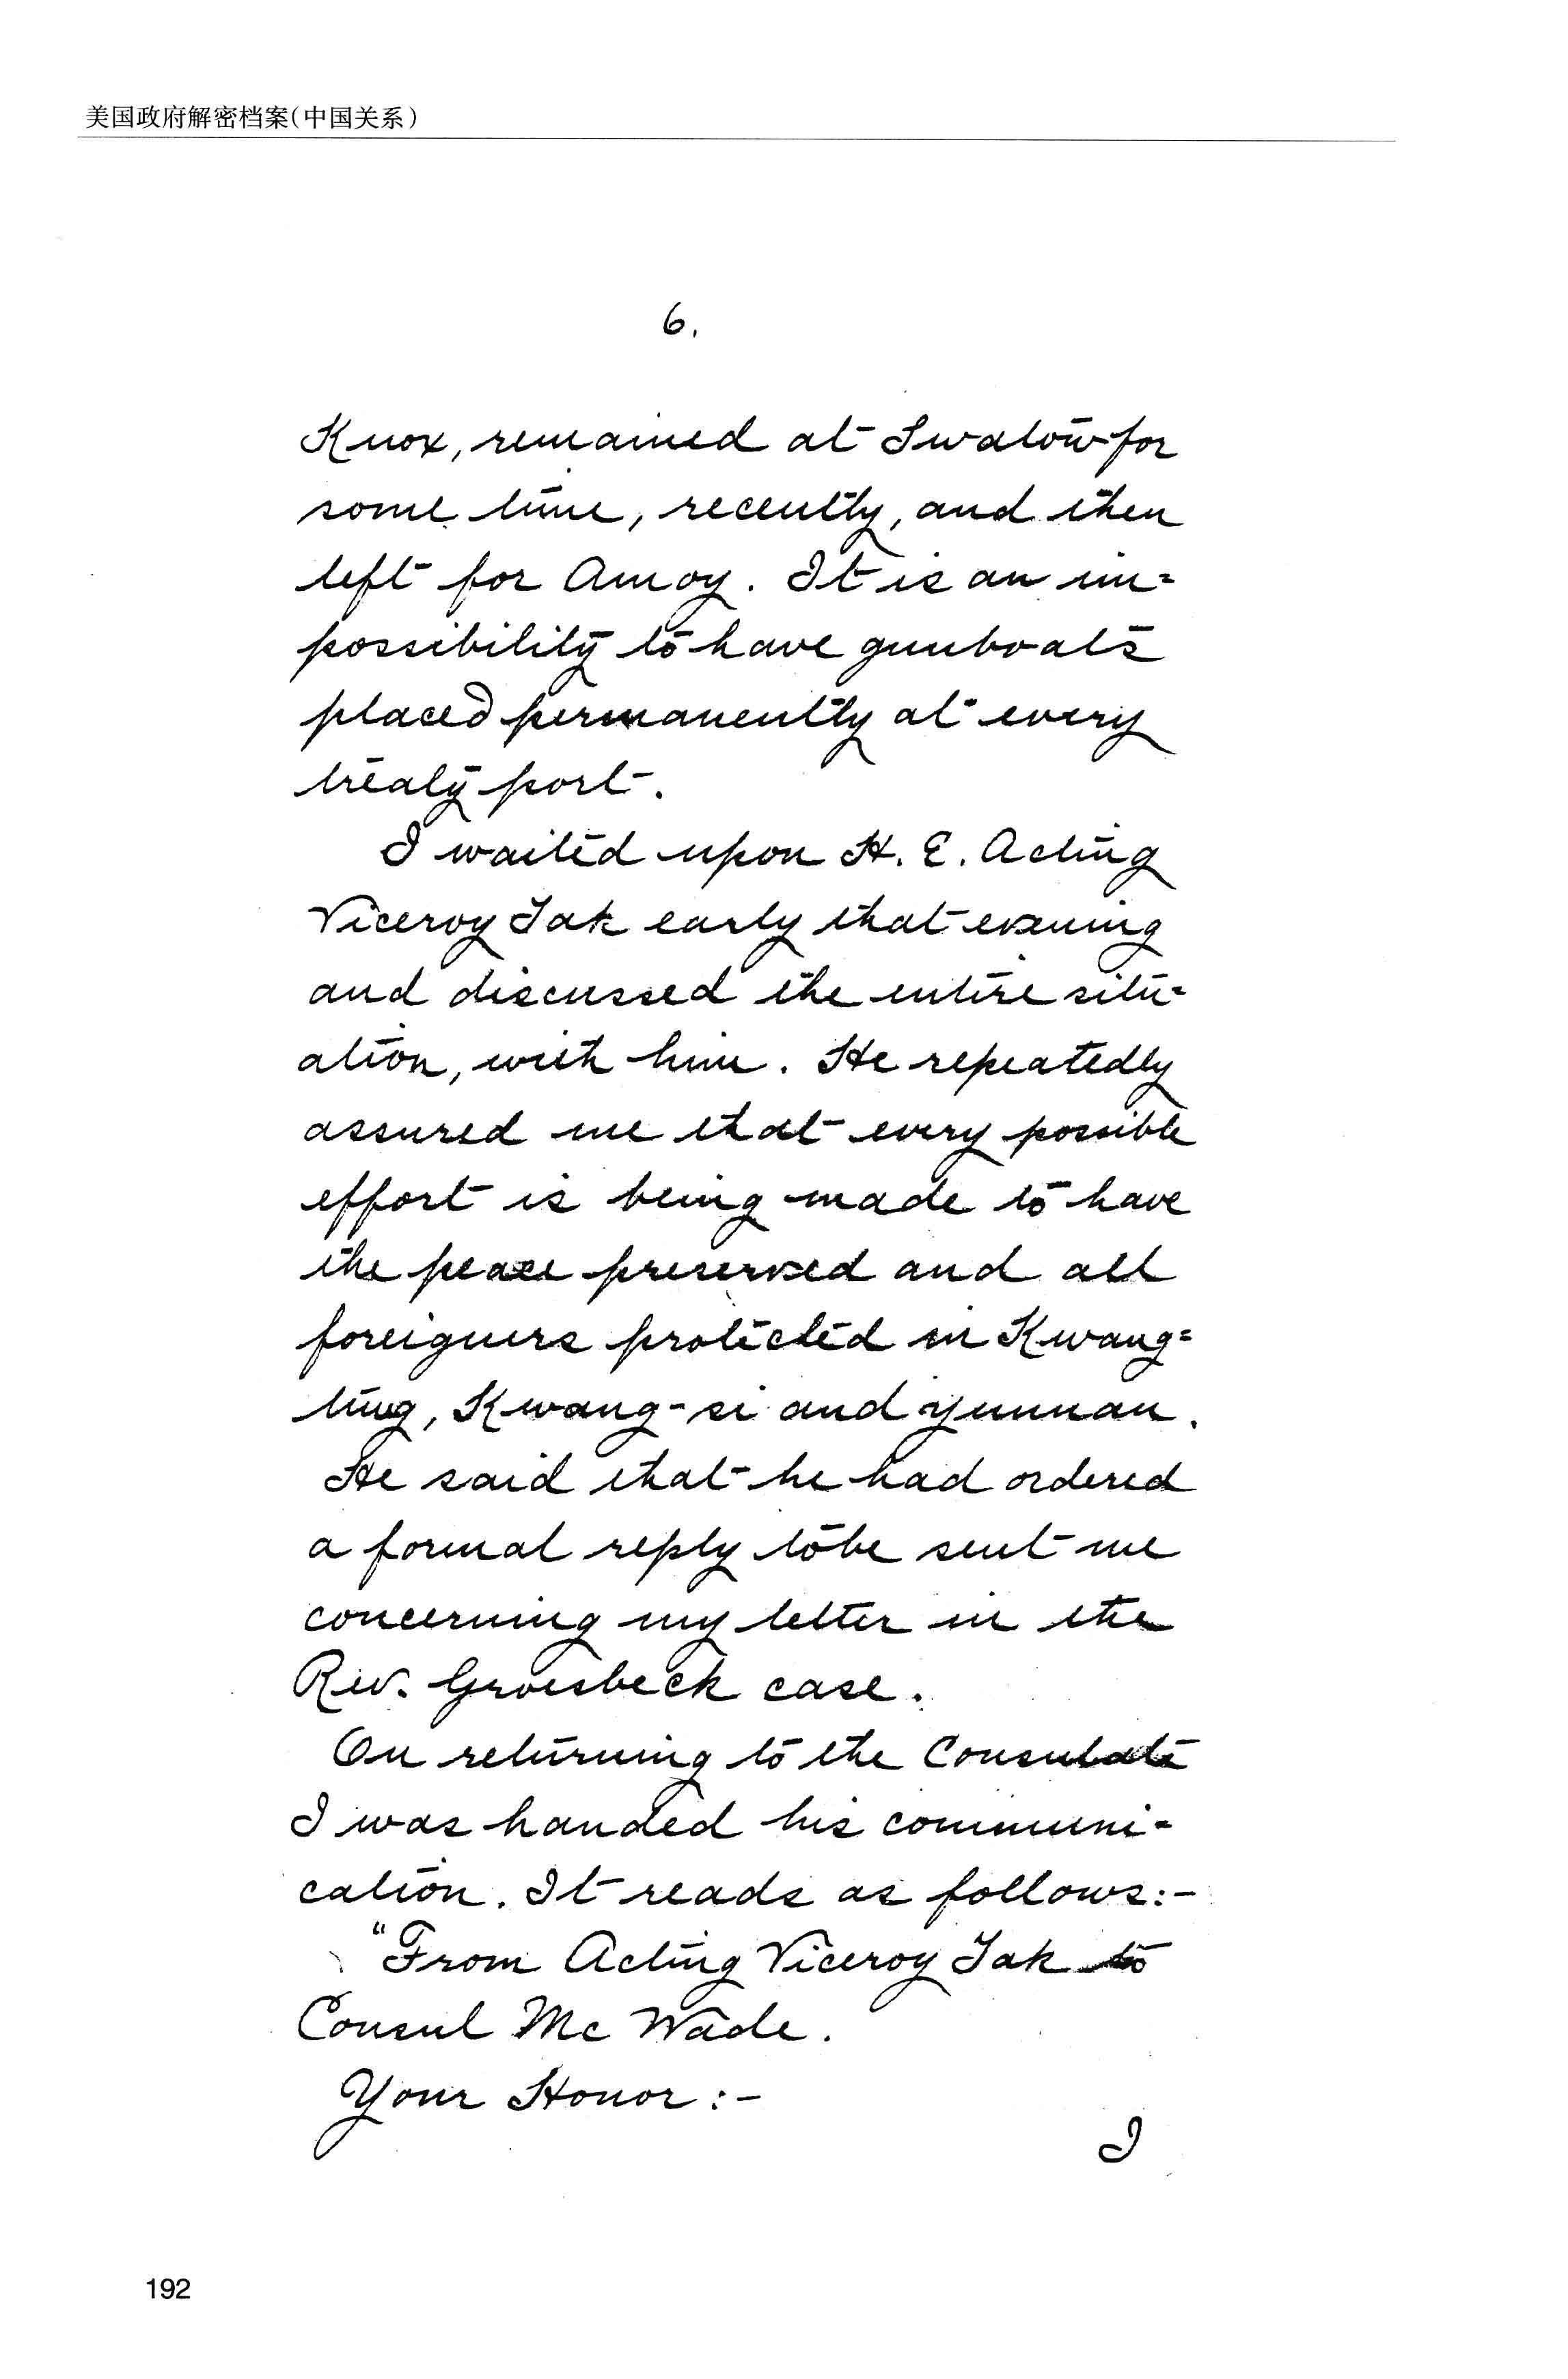 美国政府解密档案(中国关系)
6.
Knox, remained at Swatow for
some time, recently, and then
left for Amoy. It is an im=
possibility to have gunboats
placed permanently at every
treaty port.
I waited upon H. E. Acting
Viceroy Tak early that evening
and discussed the entire situ=
ation, with him. He repeatedly
assured me that every possible
effort is being made to have
the peace preserved and all
foreigners protected in Kwang=
tung, Kwang-si and Yunnan.
He said that he had ordered
a formal reply to be sent me
concerning my letter in the
Rev. Groesbeck case.
On returning to the Consulate
I was handed his communi=
cation. It reads as follows:-
"From Acting Viceroy Tak to
Consul Mc Wade.
Your Honor:-
I
192